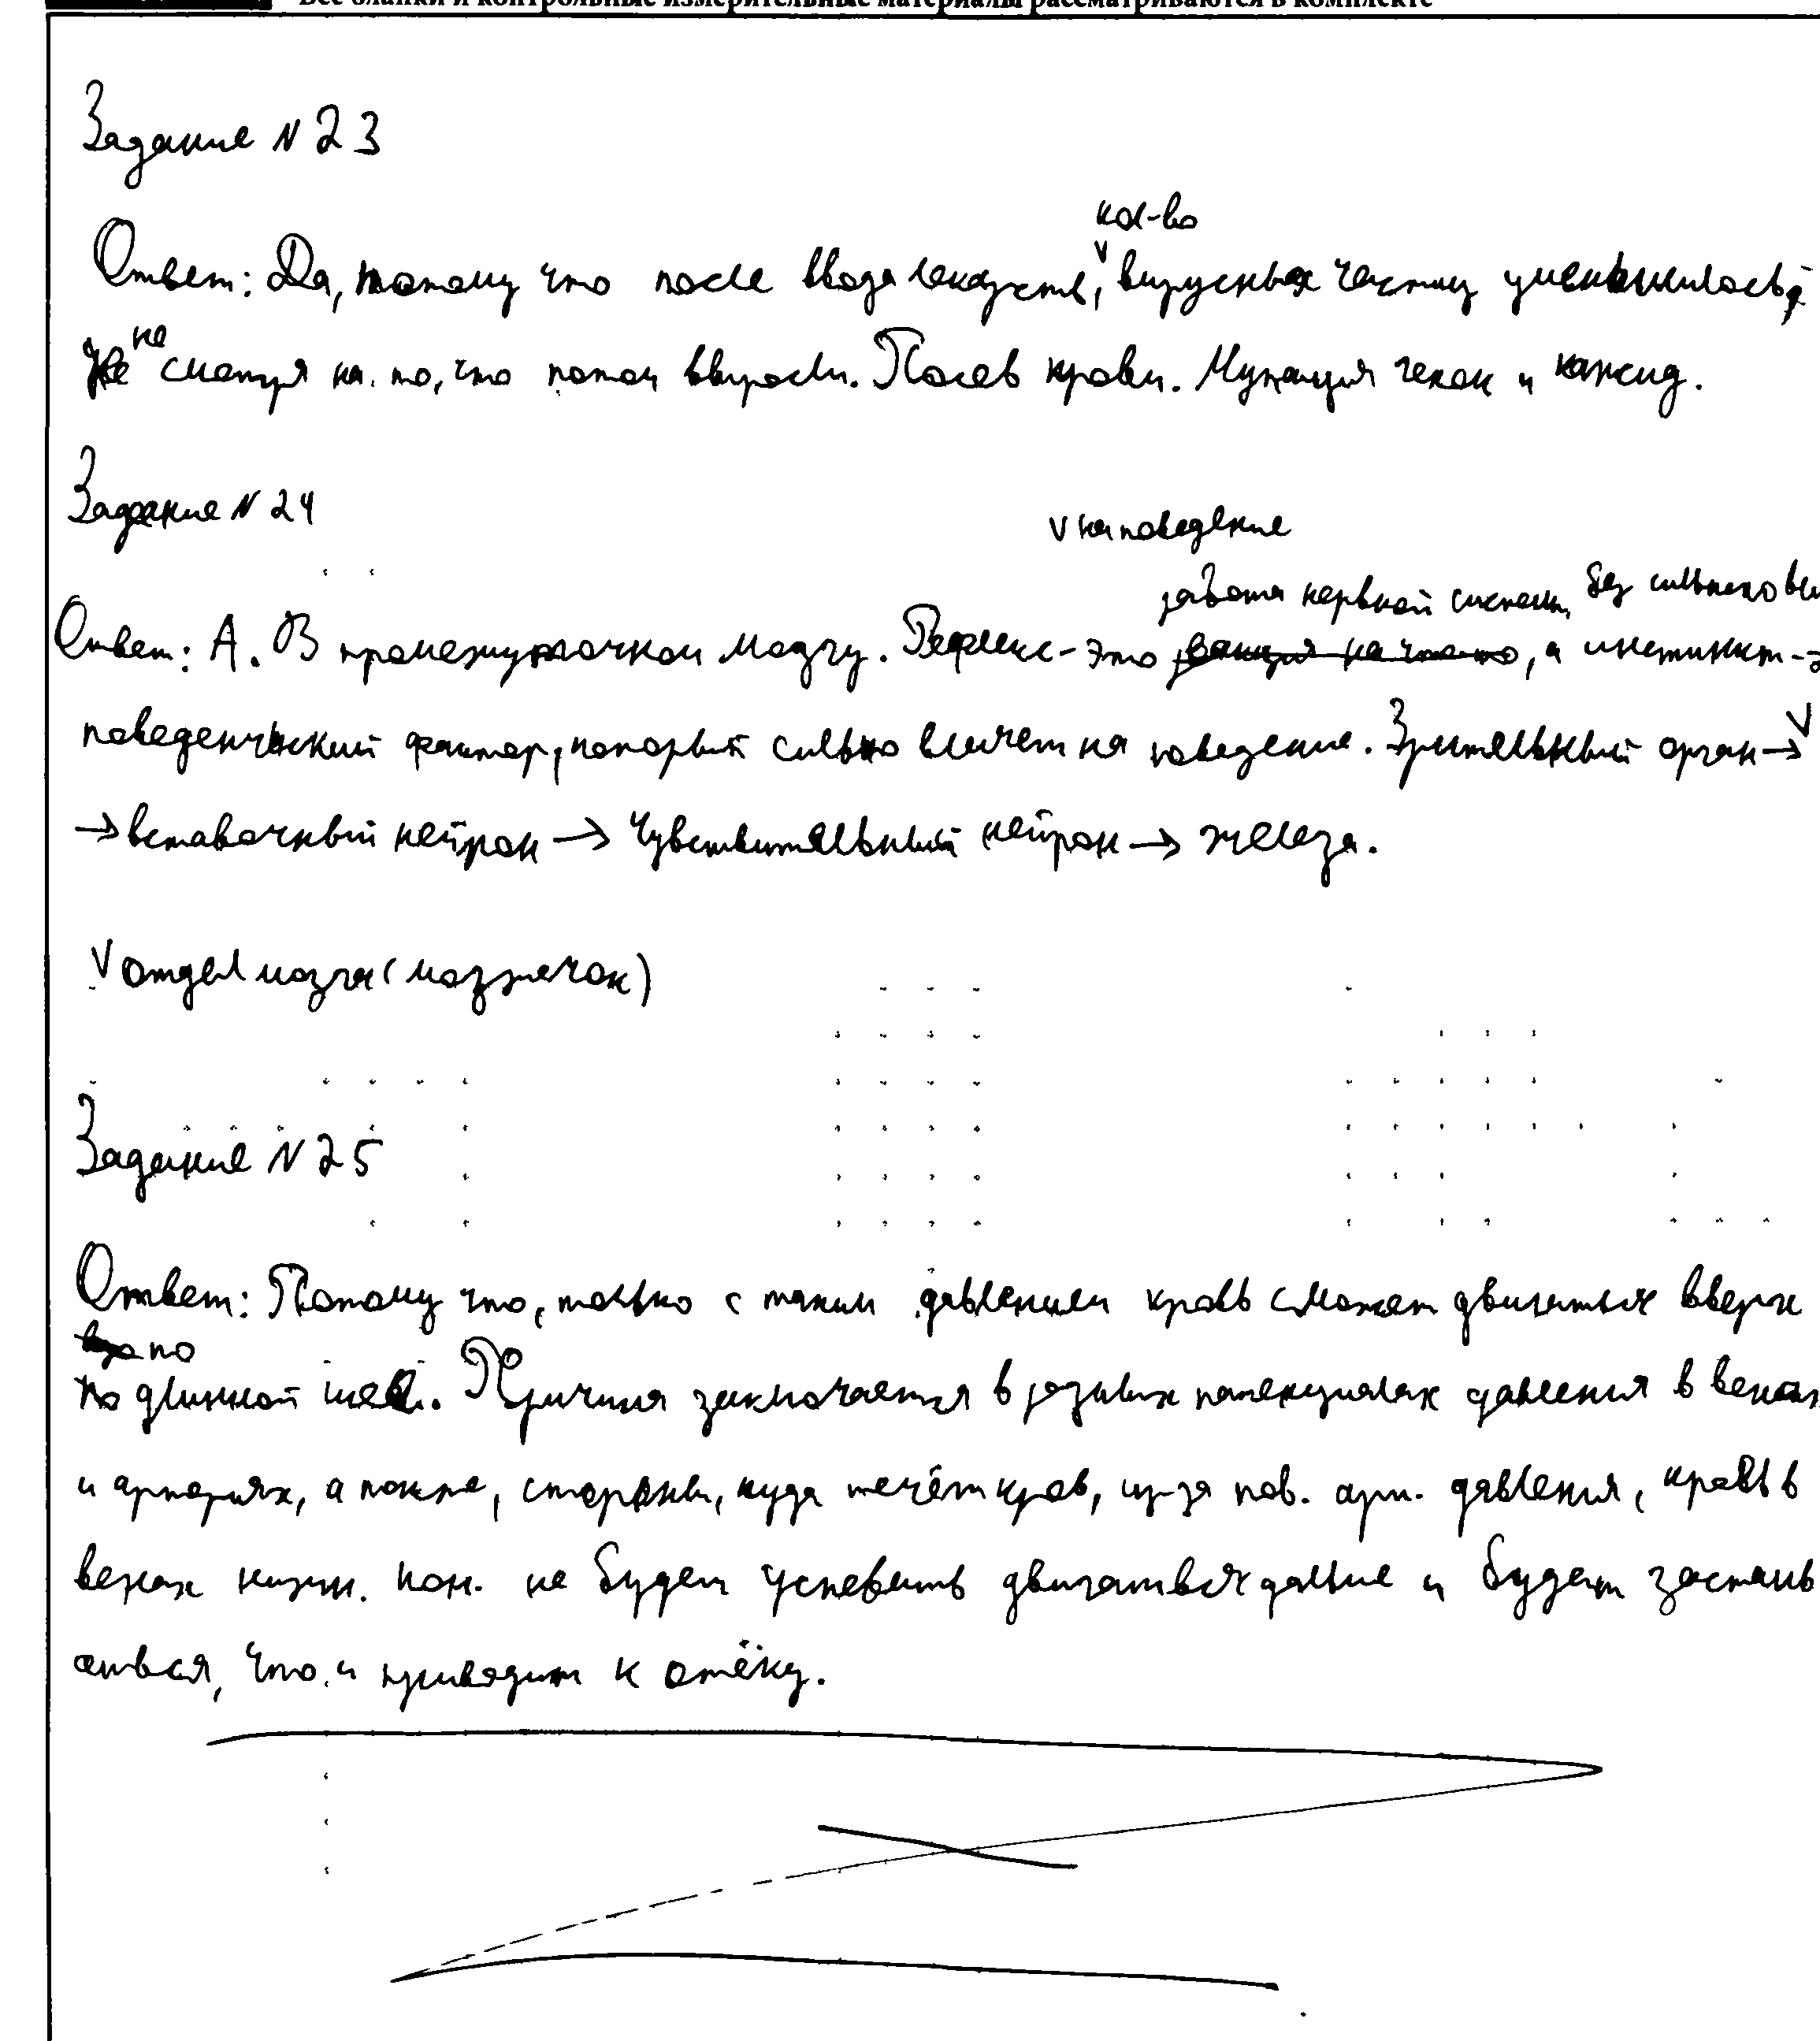 Все бланки и контрольные измерительные материалы рассматриваются в комплекте
Задание N 23
кол-во
Ответ: Да, потому что после ввода лекарств, V вирусных частиц уменьшилось,
не
смотря на то, что потом выросли. Посев крови. Мутация генов и капсид.
Задание N 24
V на поведение
работа нервной системы, без сильного
Ответ: А. В промежуточном мозгу. Рефлекс - это реакция на что-то, а инстинкт -
поведенческий фактор, который сильно влияет на поведение. Зрительный орган → V
→ вставочный нейрон → чувствительный нейрон → железа.
V отдел мозга (мозжечок)
Задание N 25
Ответ: Потому что, только с таким давлением кровь сможет двигаться вверх
по
по длинной шее. Причина заключается в разных потенциалах давления в венах
и артериях, а также, стороны, куда течёт кровь, из-за пов. арт. давления, кровь в
венах нижн. кон. не будет успевать двигаться дальше и будет застаив
аться, что и приводит к отёку.